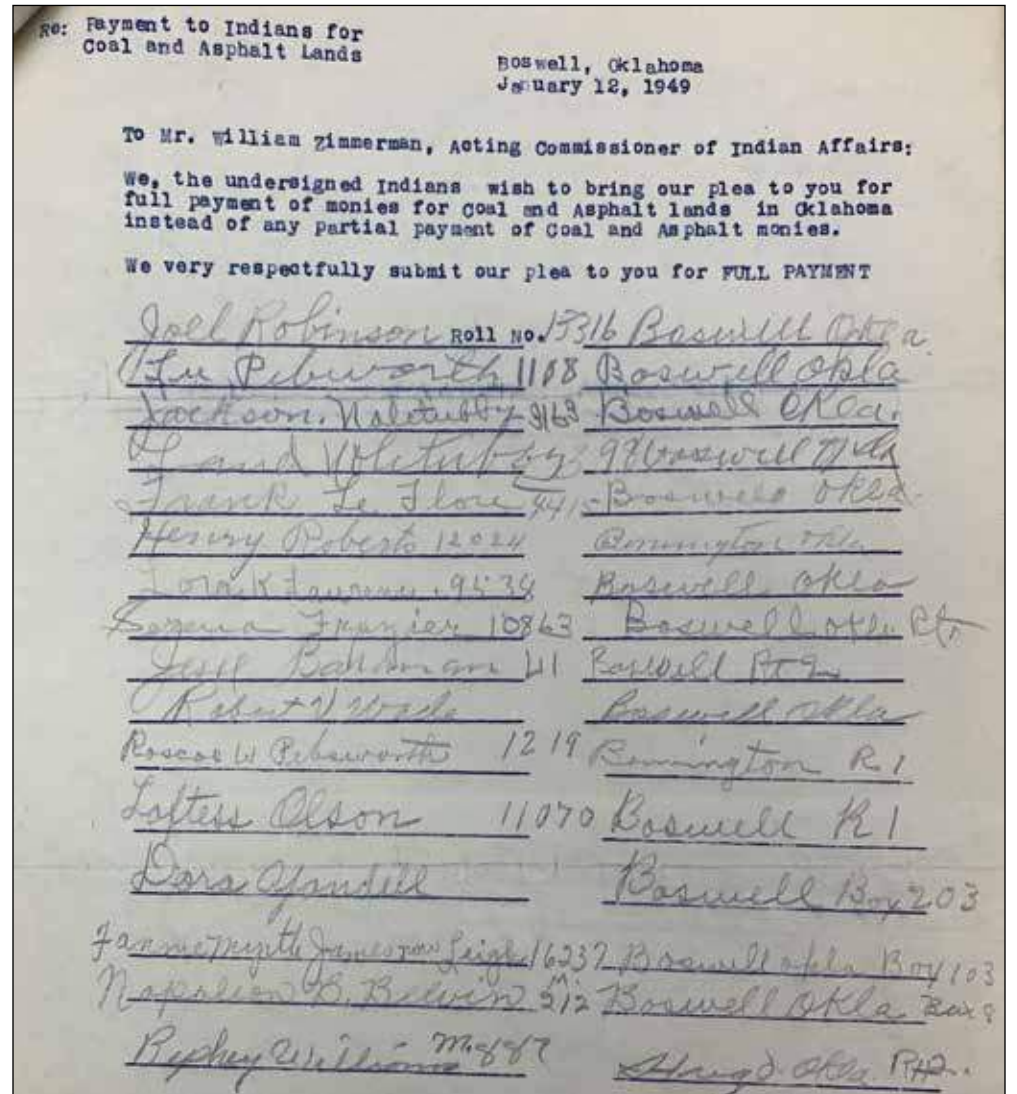 Re: Payment to Indians for
Coal and Asphalt Lands
Boswell, Oklahoma
January 12, 1949
To Mr. William Zimmerman, Acting Commissioner of Indian Affairs:
We, the undersigned Indians wish to bring our plea to you for
full payment of monies for Coal and Asphalt lands in Oklahoma
instead of any partial payment of Coal and Asphalt monies.
We very respectfully submit our plea to you for FULL PAYMENT
Joel Robinson Roll No. 15316 Boswell Okla
Pebworth 1108 Boswell Okla
Jackson. 9163 Boswell Okla.
Boswell
Frank Le Flore Boswell Okla
Henry Roberts 12024 Okla
9534 Boswell Okla
Frazier 10863 Boswell Okla Rt
Boswell Rt 2
Robert Wade Boswell Okla
Roscoe W Pebsworth 1219 R 1
Loftess Olson 11070 Boswell R 1
Dora Yandell Boswell Box 203
Fannie Myrtle James now Leigh 16237 Boswell okla Box 103
Napoleon B. Belvin Boswell Okla Box
Williams Okla